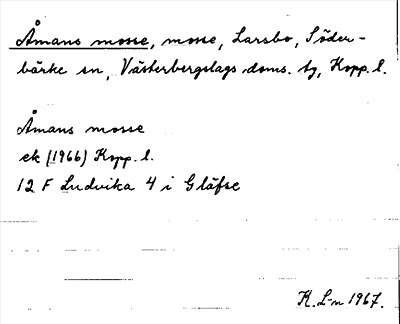 Åmans mosse, mosse, Larsbo, Söder-
bärke sn, Västerbergslags doms. tg, Kopp. l.
Åmans mosse
ek (1966) Kopp. l.
12 F Ludvika 4 i Gläfse
K. L-n 1967.